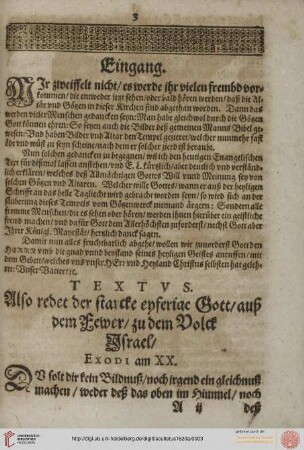 3
Eingang.
MIr zweiffelt nicht / es werde ihr vielen frembd vor-
kommen / die entweder jetzt sehen / oder bald hören werden / daß die Al-
tär vnd Götzen in dieser Kirchen sind abgethan worden. Dann das
werden vieler Menschen gedancken seyn: Man habe gleichwol durch die Götzen
Gott können ehren: So seyen auch die Bilder deß gemeinen Manns Bibel ge-
wesen: Vnd haben Bilder vnd Altar den Tempel gezieret / welcher nunmehr fast
öde vnd wüst zu seyn scheine / nach dem er solcher gestalt beraubet ist.
Nun solchen gedancken zu begegnen / wil ich den heutigen Evangelischen
Text für dißmal lassen anstehen / vnd E. L. kürtzlich / aber deutlich vnd verständ-
lich erklären / welches deß Allmächtigen Gottes Will vnnd Meinung sey von
solchen Götzen vnd Altaren. Welcher wille Gottes / wann er auß der heyligen
Schrifft an das helle Tagliecht wird gebracht worden seyn / so wird sich an der
säuberung dieses Tempels vom Götzenwerck niemand ärgern: Sondern alle
fromme Menschen / die es sehen oder hören / werden ihnen hierüber ein geistliche
frewd machen / vnd dafür Gott dem Allerhöchsten zuforderst / nechst Gott aber
Ihrer Königl. Mayestät / hertzlich danck sagen.
Damit nun alles fruchtbarlich abgehe / wollen wir zuvorderst Gott den
HERRN vmb die gnad vnnd beystand seines heyligen Geistes anruffen / mit
dem Gebett / welches vns vnser HErr vnd Heyland Christus selbsten hat geleh-
ret: Vnser Vatter / &c.
TEXTVS.
Also redet der starcke eyferige Gott / auß
dem Fewer / zu dem Volck
Israel /
EXODI am XX.
DV solt dir kein Bildnuß / noch irgend ein gleichnuß
machen / weder deß das oben im Himmel / noch
A ij deß